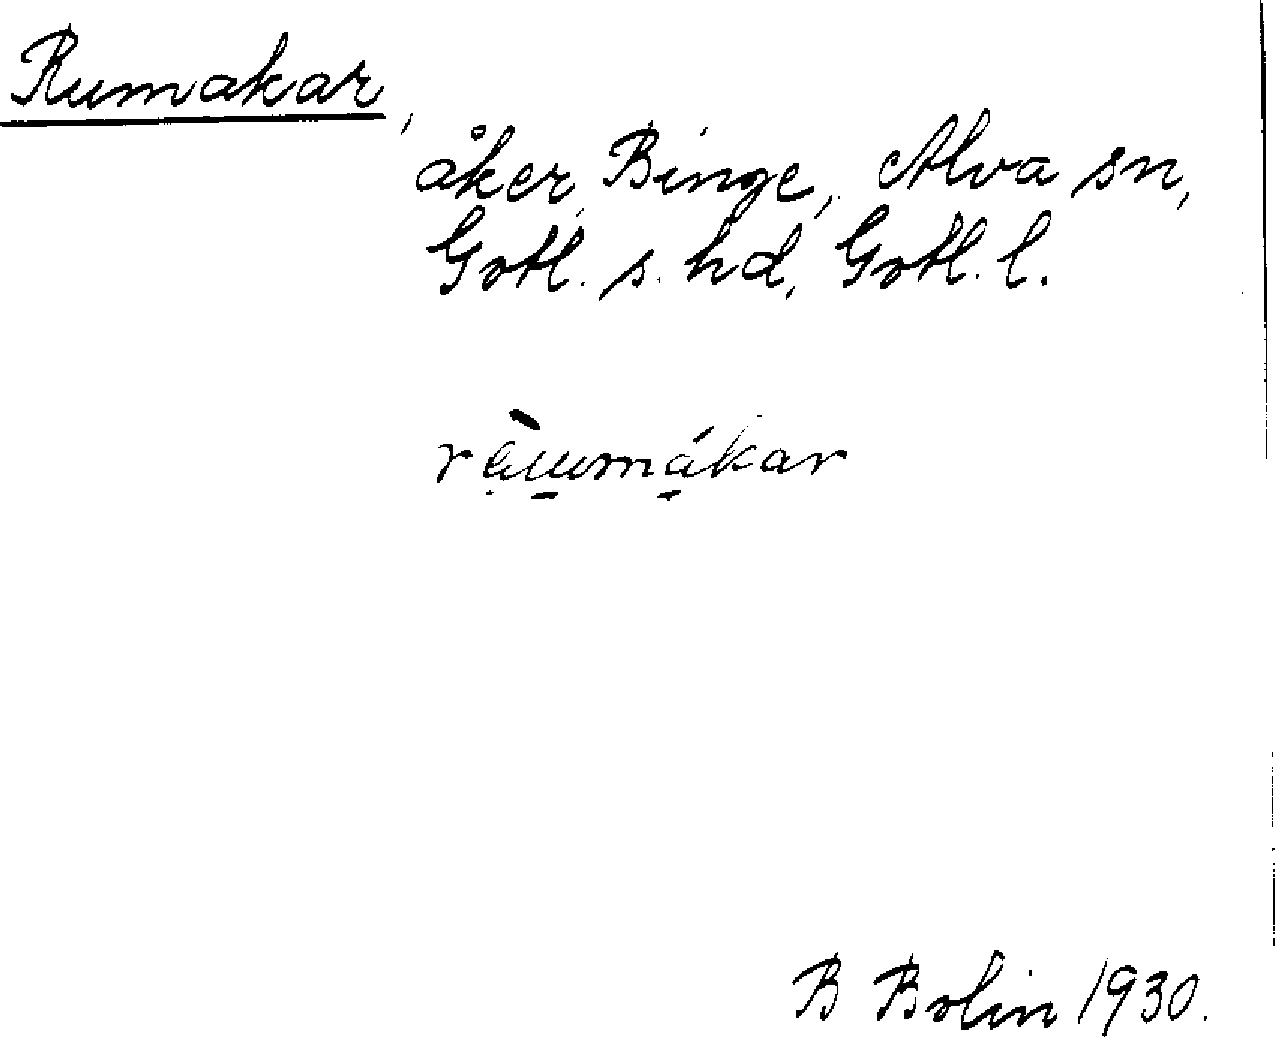 Rumakar,
åker, Binge, Alva sn,
Gotl. s. hd, Gotl. l.
B Bolin 1930.